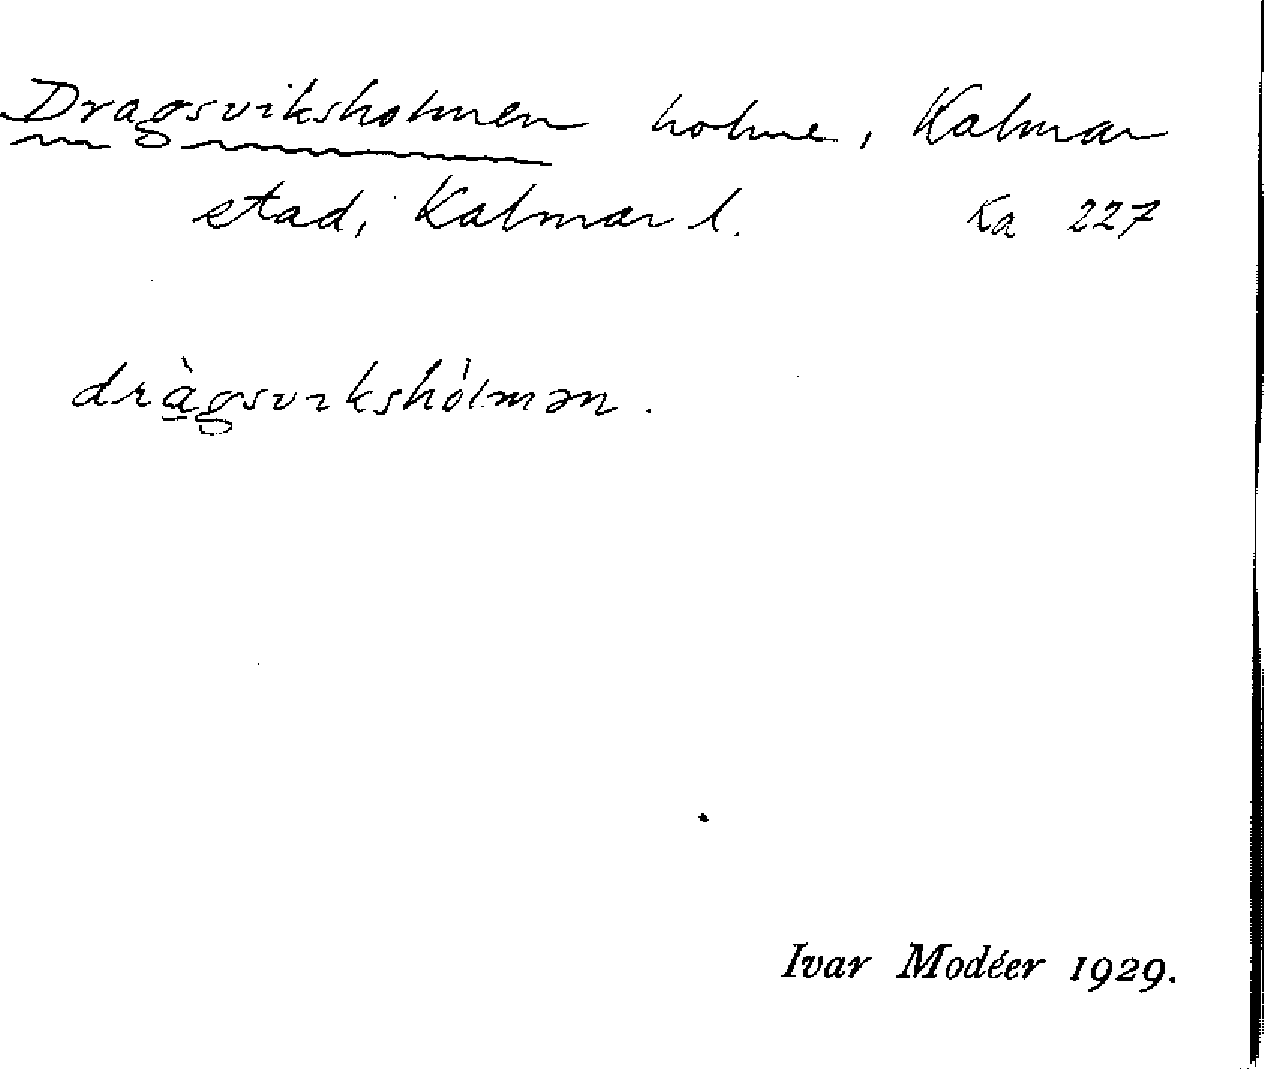 Dragsviksholmen holme, Kalmar
stad, Kalmar l. Ka 227
dràgsvıkshòlmən.
Ivar Modéer 1929.